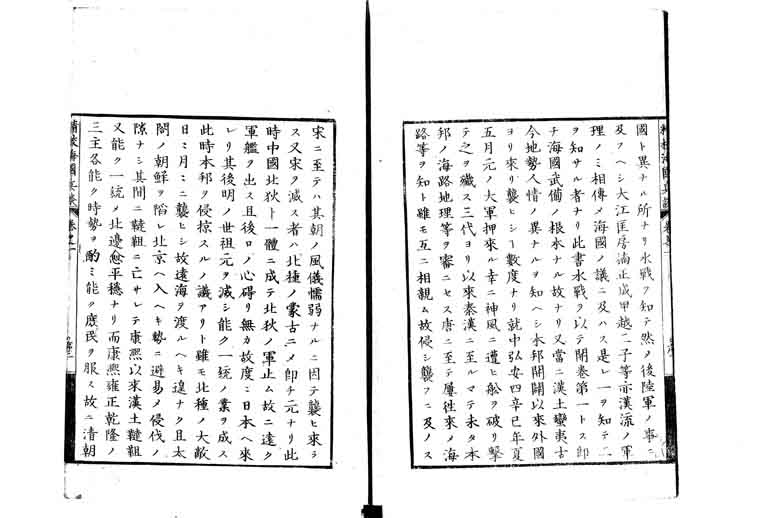 國ト異ナル所ナリ水戰ヲ知テ然メ後陸軍ノ事ニ
及フヘシ大江匡房楠正成甲越二子等亦漢流ノ軍
理ノミ相傳メ海國ノ議ニ及ハス是レ一ヲ知テ二
ヲ知サル者ナリ此書水戰ヲ以テ開卷第一トス即
チ海國武備ノ根水ナル故ナリ又當ニ漢土蠻夷古
今地勢人情ノ異ナルヲ知ヘシ本邦開闢以來外國
ヨリ來リ襲ヒシヿ數度ナリ就中弘安四辛巳年夏
五月元ノ大軍押來ル幸ニ神風ニ遭ヒ舩ヲ破リ擊
テ之ヲ殲ス三代ヨリ以來秦漢ニ至ルマテ未タ本
邦ノ海路地理等ヲ審ニセス唐ニ至テ屢徃來メ海
路等ヲ知ト雖モ互ニ相親ム故侵シ襲フニ及ノス
宋ニ至テハ其朝ノ風儀懦弱ナルニ因テ襲ヒ來ラ
ス又宋ヲ滅ス者ハ北種ノ蒙古ニメ即チ元ナリ此
時中國北狄ト一體ニ成テ北狄ノ軍止ム故ニ遠ク
軍艦ヲ出ス且後ロノ心碍リ無カ故度ニ日本ヘ來
レリ其後明ノ世祖元ヲ滅シ能ク一統ノ業ヲ成ス
此時本邦ヲ侵掠スルノ議アリト雖モ北種ノ大敵
日ニ月ミニ襲ヒシ故遠海ヲ渡ルヘキ遑ナク且太
閤ノ朝鮮ヲ陷レ北京ヘ入ヘキ勢ニ避易メ侵伐ノ
隙ナシ其間ニ韃靼ニ亡サレテ康熙以來漢土韃靼
又能ク一統メ北邊愈平穩ナリ而康熙雍正乾隆ノ
三主各能ク時勢ヲ酌ミ能ク庶民ヲ服ス故ニ清朝
精校海國兵談 卷之一